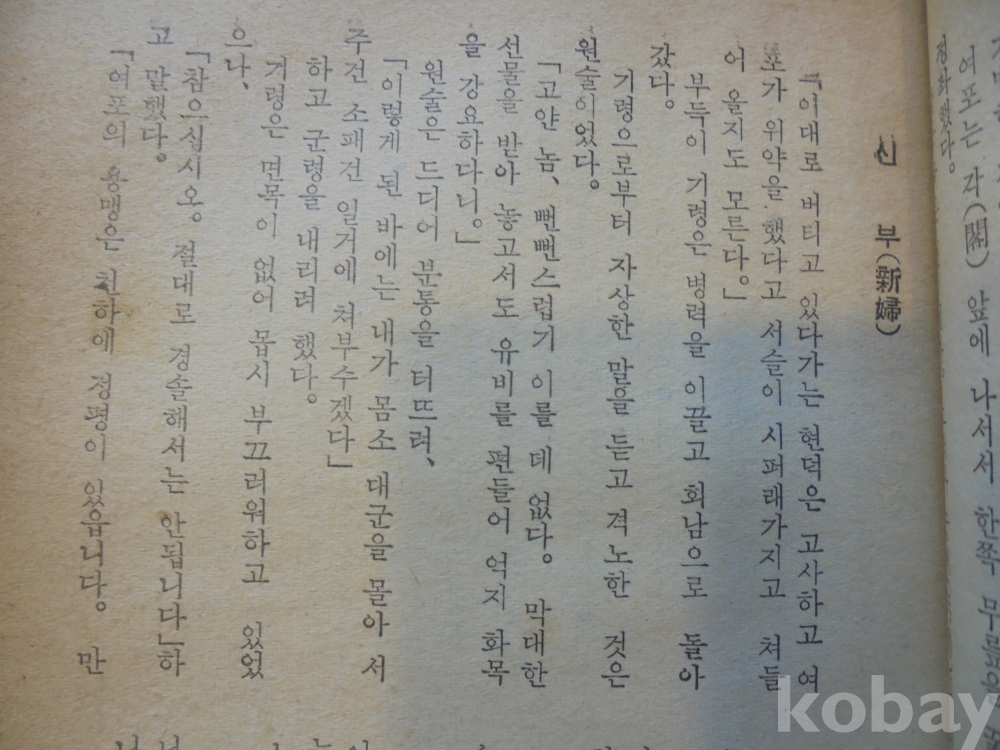 여포는 각(閣) 앞에 나서서 한쪽
신 부(新婦)
「이대로 버티고 있다가는 현덕은 고사하고 여
포가 위약을 했다고 서슬이 시퍼래가지고 쳐들
어 올지도 모른다。」
부득이 기령은 병력을 이끌고 회남으로 돌아
갔다。
기령으로부터 자상한 말을 듣고 격노한 것은
원술이었다。
「고얀 놈、뻔뻔스럽기 이를 데 없다。 막대한
선물을 받아 놓고서도 유비를 편들어 억지 화목
을 강요하다니。」
원술은 드디어 분통을 터뜨려、
「이렇게 된 바에는 내가 몸소 대군을 몰아 서
주건 소패건 일거에 쳐부수겠다」
하고 군령을 내리려 했다。
기령은 면목이 없어 몹시 부끄러워하고 있었
으나、
「참으십시오。 절대로 경솔해서는 안됩니다」하
고 말했다。
「여포의 용맹은 천하에 정평이 있읍니다。 만
kobay